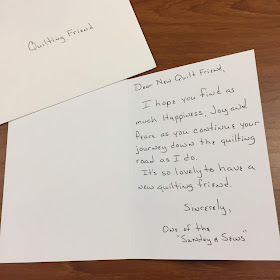 Quilting Friend
Dear New Quilt Friend,
I hope you find as
much Happiness, Joy and
Peace as you continue your
journey down the quilting
road as I do.
It's so lovely to have a
new quilting friend.
Sincerely,
One of the
"Sandy & Sews"